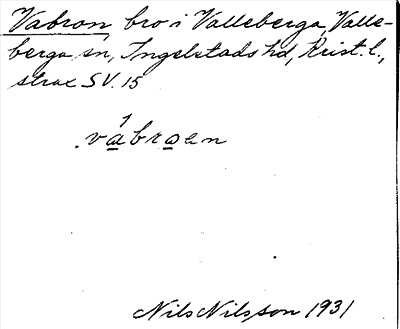 Vabron bro i Valleberga, Valle-
berga sn, Ingelstads hd, Krist. l.,
strax SV. 15
vábroen
Nils Nilsson 1931